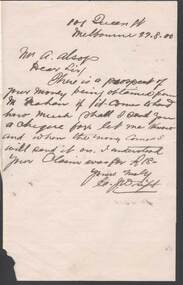 101 Queen St
Melbourne 22.8.00
Mr A. Alsop
Dear Sir
There is a prospect of
your money being obtained from
Mr if it comes to hand
how much shall I send you
a cheque for let me know
and when the money comes I
will send it on. I understand
your claim was for
Yours truly